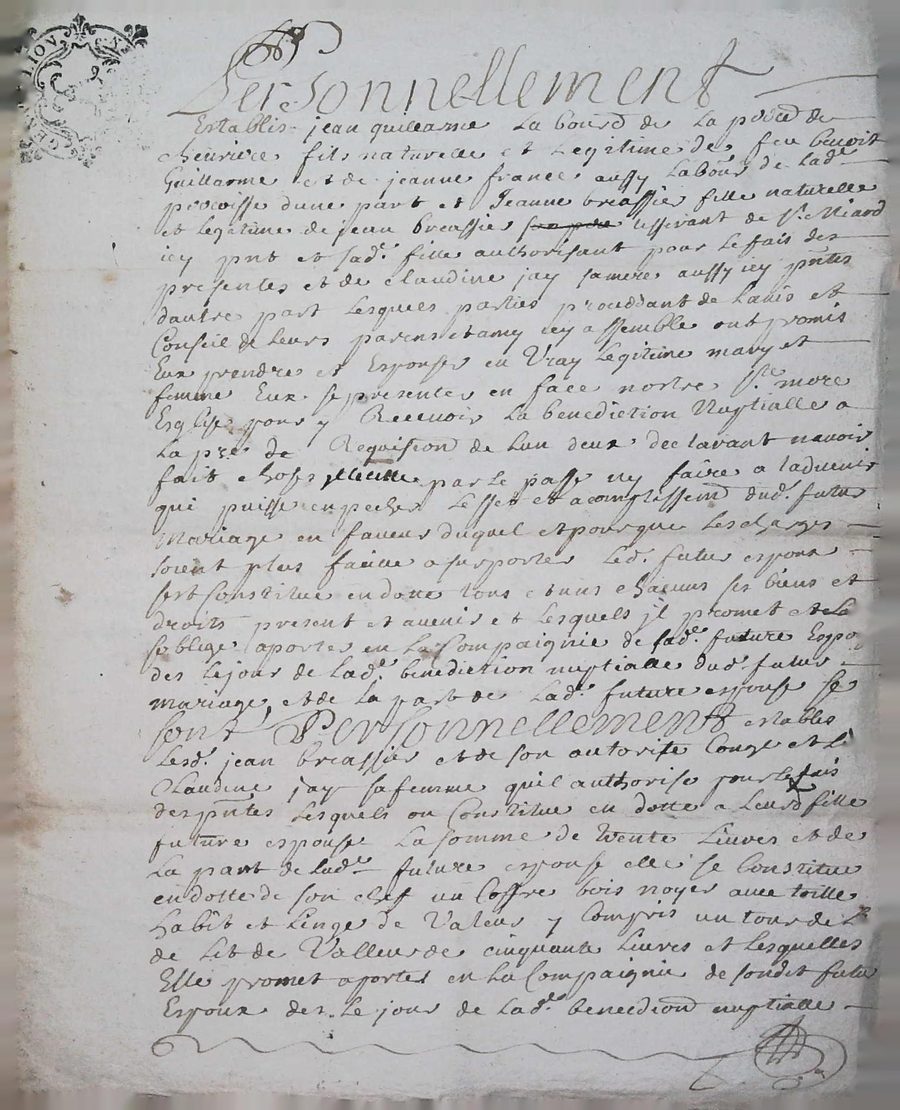 Personnellement
Establis jean guillarme Labourd de La parod de
cheuriere fils naturelle et Legitime de feu benoit
Guillarme et de jeanne france aussy Labour de lade
paroisse dune part et Jeanne breassie fille naturelle
et legitime de jean breassier tisserant de St
icy pnt et sade fille authorisant pour le fais des
presentes et de claudine jay samere aussy icy pntes
dautre part Lesquels parties proceddant de Lauis et
Conseil de leurs parens et amy icy assemble ont promis
Eux prendre et Espouser en Vray legitime mary et
femme Eux se presenter en face nostre Ste mere
Esglise pour y Receuoir La benediction Nuptialle a
La pre de Requision de Lun deux declarant nauoir
fait chose par le passe ny faire a laduenir
qui puisse enpecher Leffet et acomplissemt dud. futur
Mariage en faueur duquel et pour que Les charges
soient plus facille a suporter Led. futur espoux
sest Constitue en dotte tous et uns chacuns ses biens et
droits present et auenir et Lesquels jl promet et
soblige aporter en La Compaignie de lade future Espo
des le jour de Lade benediction nuptialle dud. futur
mariage, et de La part de Lade future espouse se
sont Personnellement establis
Led. jean breassier et de son autorite Conge et L.
Claudine jay sa femme quil authorise pour le fais
des pntes Lesquels on Constitue en dotte a Leurd fille
future espouse La somme de trente Liures et de
La part de Lade future espouse elle se Constitue
en dotte de son chef un Coffre bois noyer auec toille
habit et Linge de Valeur y Compris un tour de L
de Lit de Valleur de cinquante Liures et Lesquelles
Elle promet aporter en La Compaignie de sondit futur
Espoux des le jour de Lade benediction nuptialle